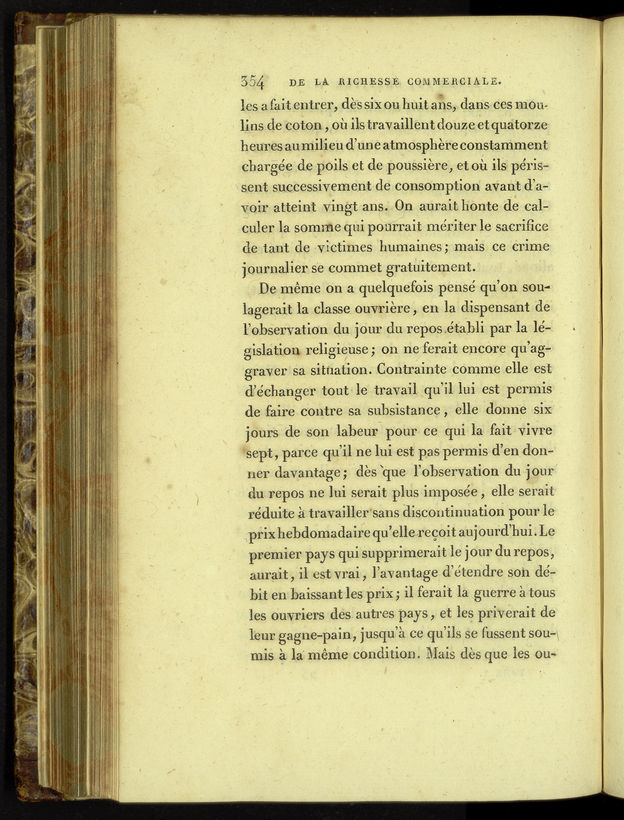 354 DE LA RICHESSE COMMERCIALE.
les a fait entrer, dès six ou huit ans, dans ces mou-
lins de coton, où ils travaillent douze et quatorze
heures au milieu d'une atmosphère constamment
chargée de poils et de poussière, et où ils péris-
sent successivement de consomption avant d'a-
voir atteint vingt ans. On aurait honte de cal-
culer la somme qui pourrait mériter le sacrifice
de tant de victimes humaines; mais ce crime
journalier se commet gratuitement.
De même on a quelquefois pensé qu'on sou-
lagerait la classe ouvrière, en la dispensant de
l'observation du jour du repos établi par la lé-
gislation religieuse; on ne ferait encore qu'ag-
graver sa situation. Contrainte comme elle est
d'échanger tout le travail qu'il lui est permis
de faire contre sa subsistance, elle donne six
jours de son labeur pour ce qui la fait vivre
sept, parce qu'il ne lui est pas permis d'en don-
ner davantage; dès que l'observation du jour
du repos ne lui serait plus imposée, elle serait
réduite à travailler sans discontinuation pour le
prix hebdomadaire qu'elle reçoit aujourd'hui. Le
premier pays qui supprimerait le jour du repos,
aurait, il est vrai, l'avantage d'étendre son dé-
bit en baissant les prix; il ferait la guerre à tous
les ouvriers des autres pays, et les priverait de
leur gagne-pain, jusqu'à ce qu'ils se fussent sou-
mis à la même condition. Mais dès que les ou-